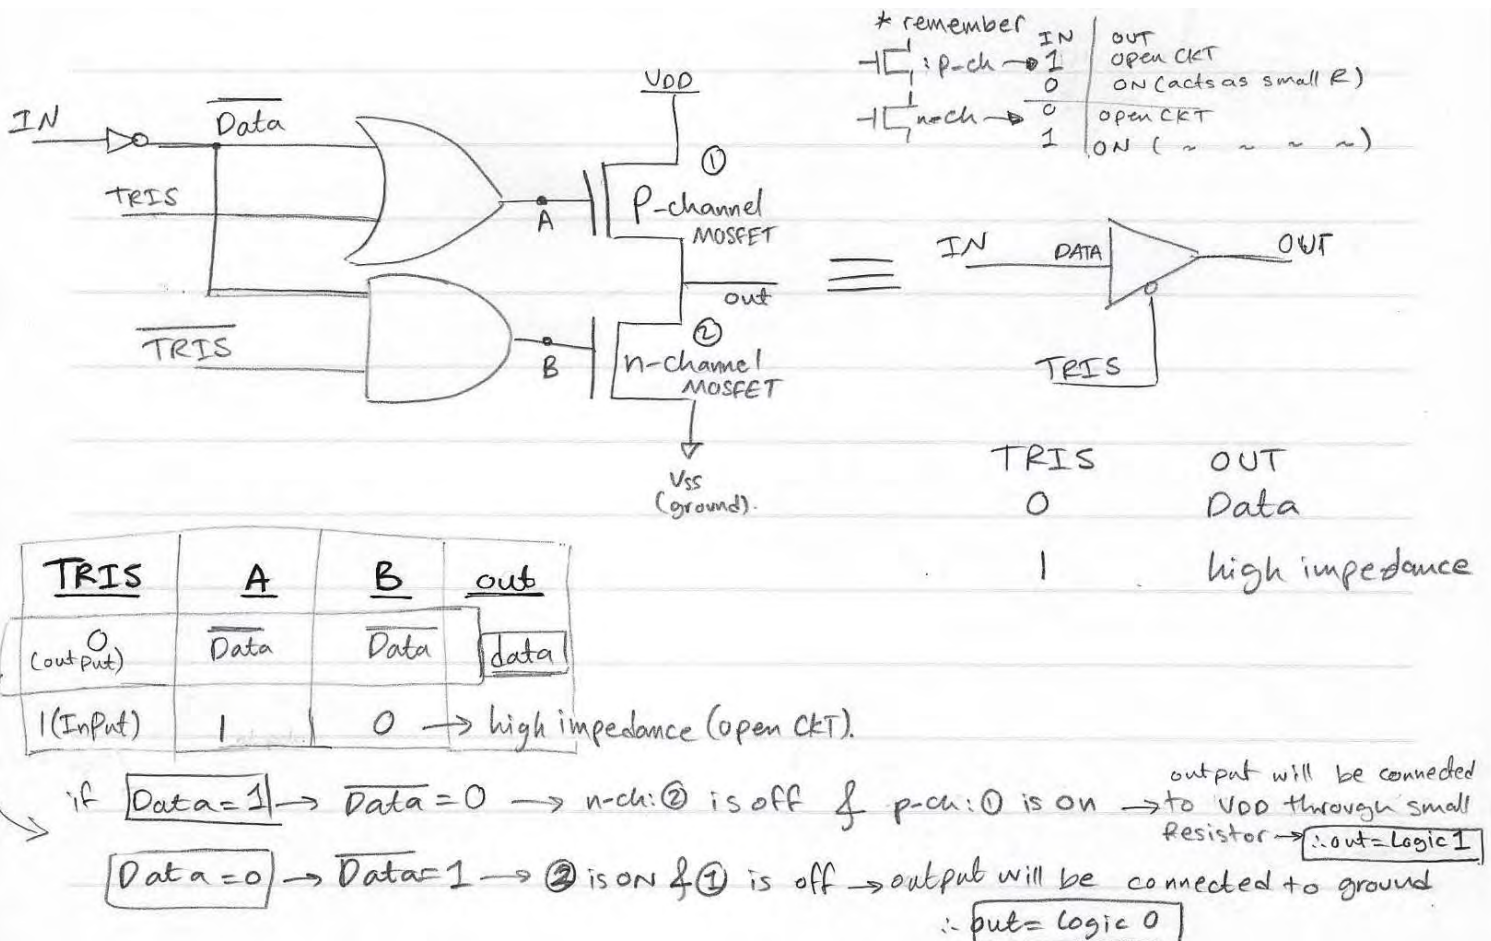 * remember
IN OUT
: p-ch → 1 open CKT
0 ON (acts as small R)
n-ch → 0 open CKT
1 ON ( ~ ~ ~ ~ )
VDD
IN
D̅a̅t̅a̅
TRIS
A
①
P-channel
MOSFET
out
T̅R̅I̅S̅
B
②
n-channel
MOSFET
VSS
(ground).
≡
IN DATA OUT
TRIS
TRIS OUT
0 Data
1 high impedance
TRIS A B out
0 D̅a̅t̅a̅ D̅a̅t̅a̅ data
(output)
1 (InPut) 1 0 → high impedance (open CKT).
if Data=1 → D̅a̅t̅a̅=0 → n-ch:② is off & p-ch:① is on →
output will be connected
to VDD through small
Resistor → ∴ out=Logic 1
Data=0 → D̅a̅t̅a̅=1 → ② is ON & ① is off → output will be connected to ground
∴ out= Logic 0